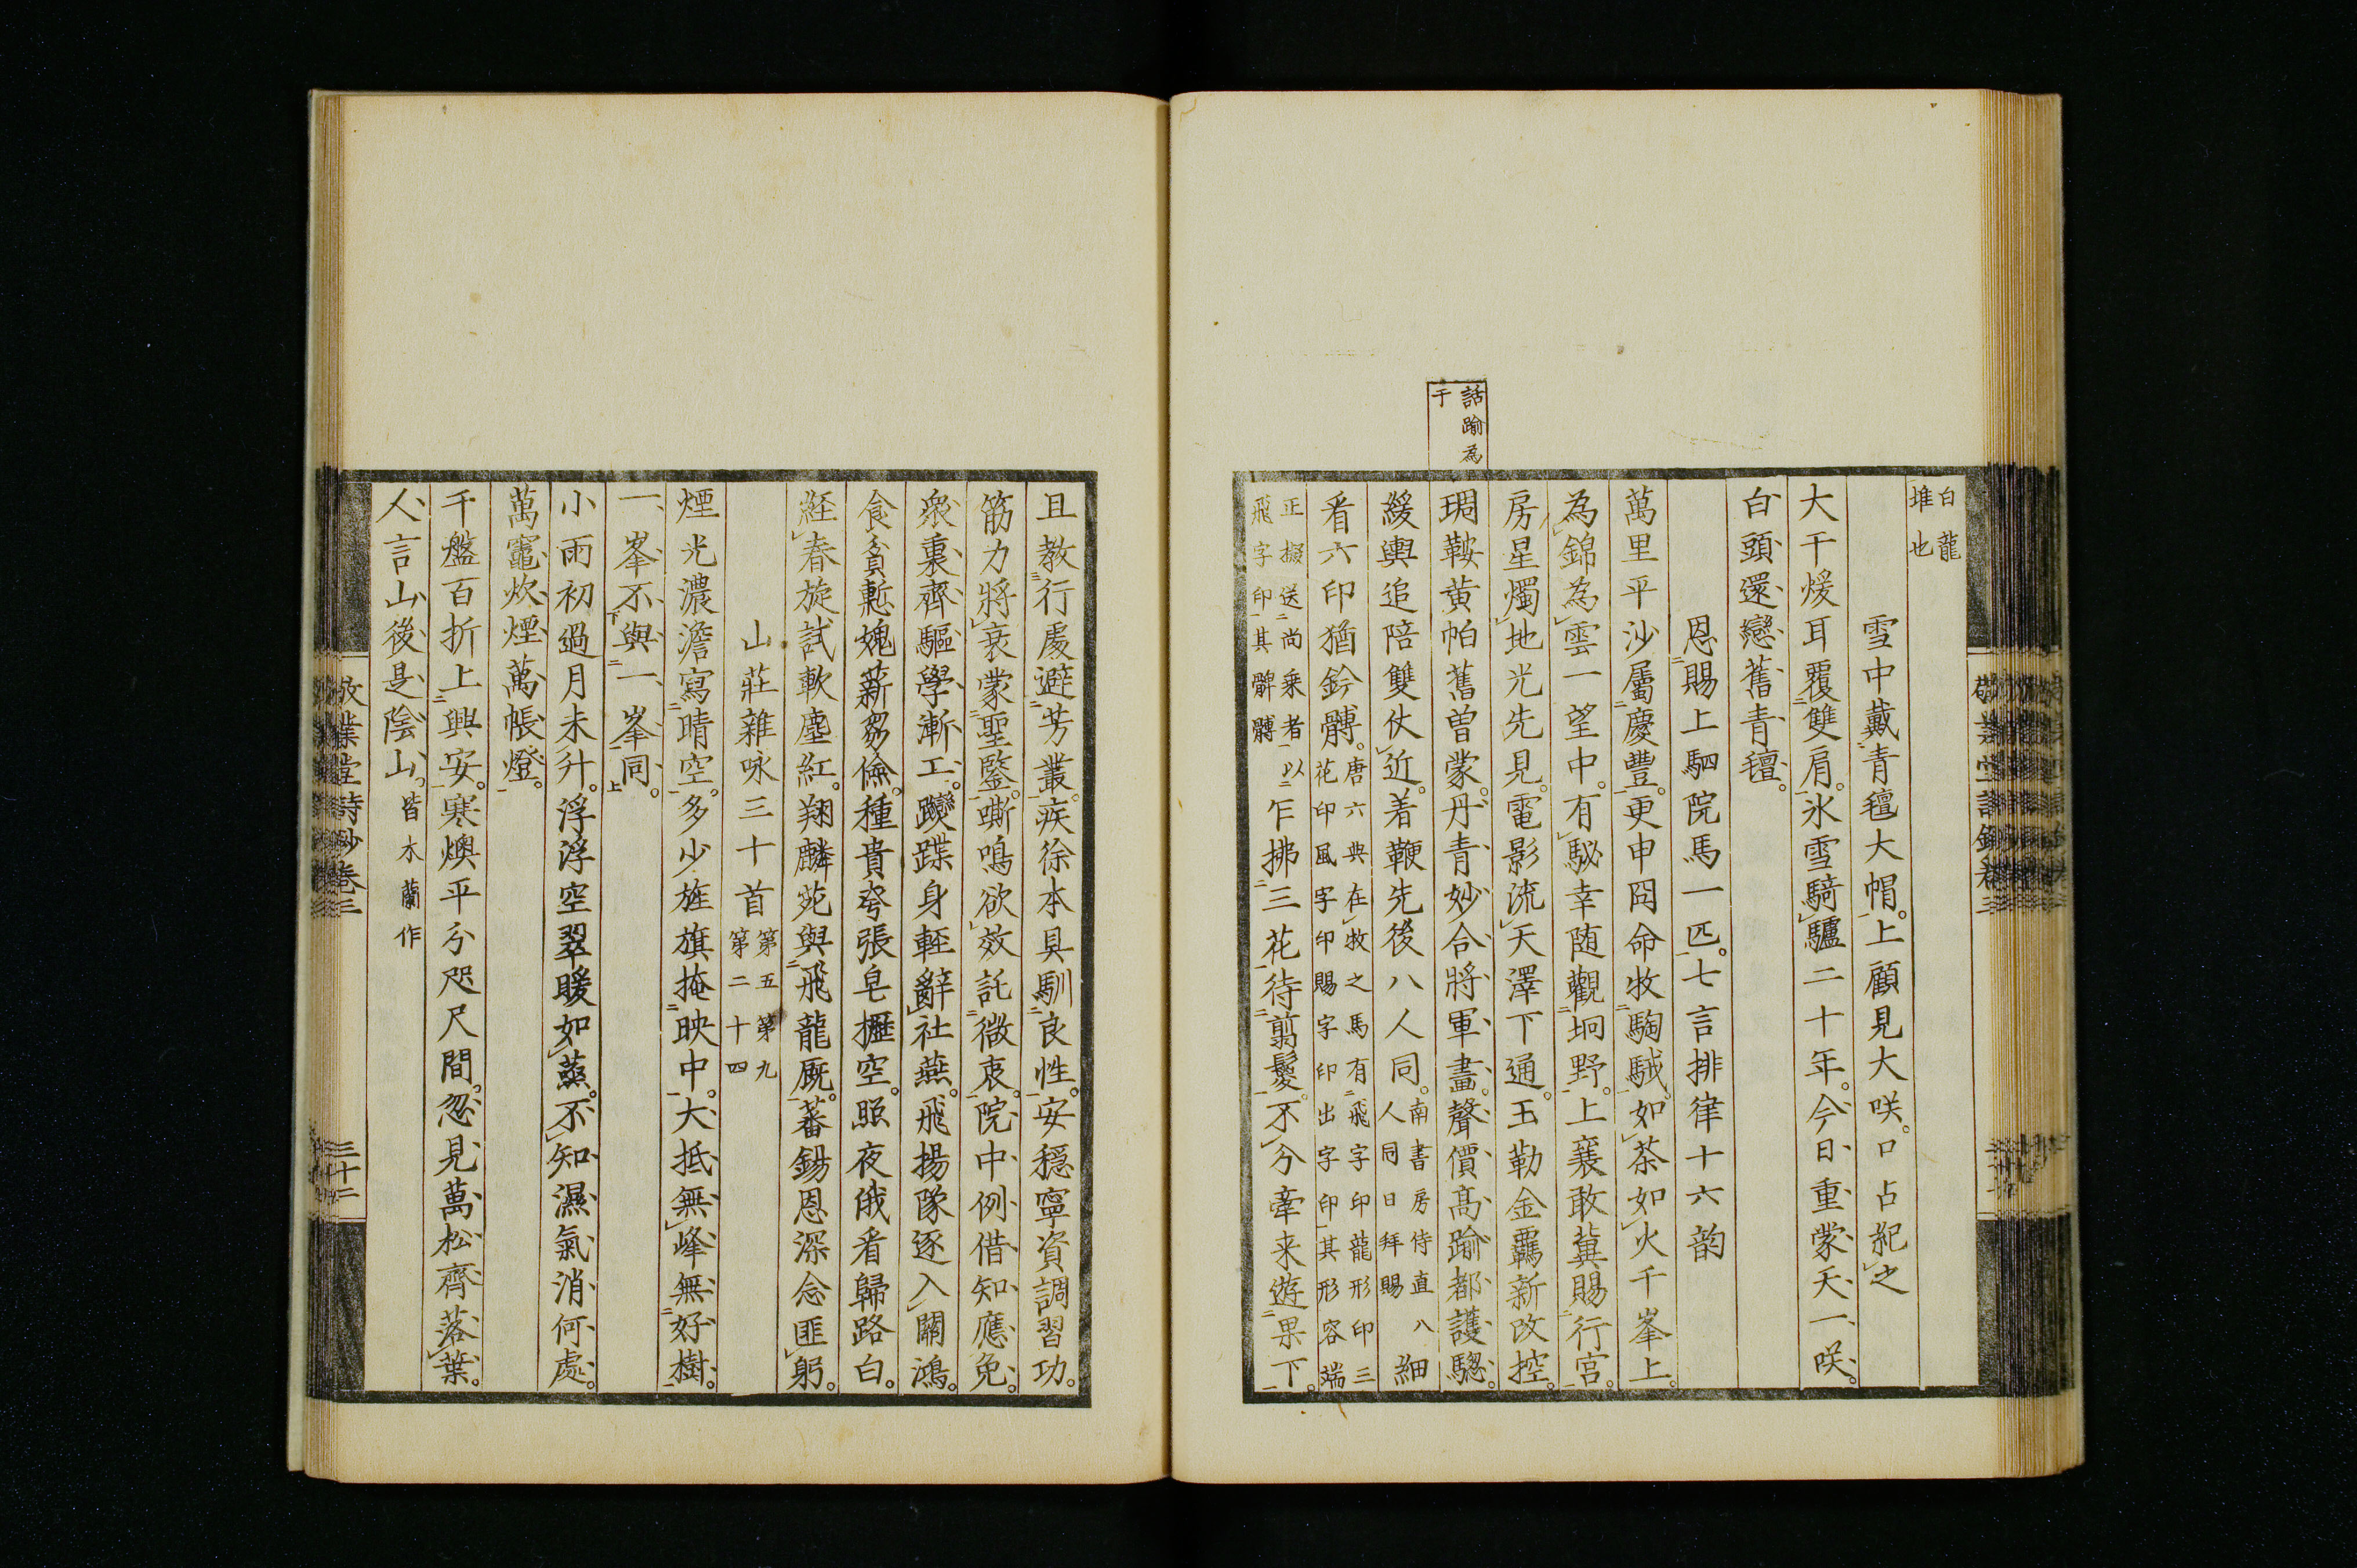 話踰為
于
白龍
堆也
雪中戴青氊大帽上顧見大咲口占紀之
大干煖耳覆雙肩氷雪騎驢二十年今日重蒙天一咲
白頭還戀舊青氊
恩賜上駟院馬一匹七言排律十六韵
萬里平沙屬慶豐更申冏命牧騊駥如荼如火千峯上
為錦為雲一望中有駜幸随觀坰野上襄敢冀賜行宮
房星燭地光先見電影流天澤下通玉勒金羈新改控
琱鞍黄帕舊曽蒙丹青妙合將軍畫聲價髙踰都護驄
緩輿追陪雙仗近着鞭先後八人同南書房侍直八
人同日拜賜
細
看六印猶鈐髆唐六典在牧之馬有飛字印龍形印三
花印風字印賜字印出字印其形容端
正擬送尚乗者以
飛字印印其髀髆
乍拂三花待翦鬉不分牽来遊果下
且教行處避芳叢疾徐本具馴良性安穏寧資調習功
筋力將衰蒙聖鑒嘶鳴欲效託微衷院中例借知應免
衆裏齊驅學漸工躞蹀身軽辭社燕飛揚隊逐入關鴻
食貧慙媿薪芻儉種貴夸張皂櫪空照夜俄看歸路白
経春旋試軟塵紅翔麟苑與飛龍厩蕃錫恩深念匪躬
山荘雜咏三十首第五第九
第二十四
煙光濃澹寫晴空多少旌旗掩映中大抵無峰無好樹
一峯不與一峯同
小雨初過月未升浮浮空翠暖如蒸不知濕氣消何處
萬竈炊煙萬帳燈
千盤百折上興安寒燠平分咫尺間忽見萬松齊落葉
人言山後是陰山皆木蘭作
敬業堂詩鈔巻三
三十二